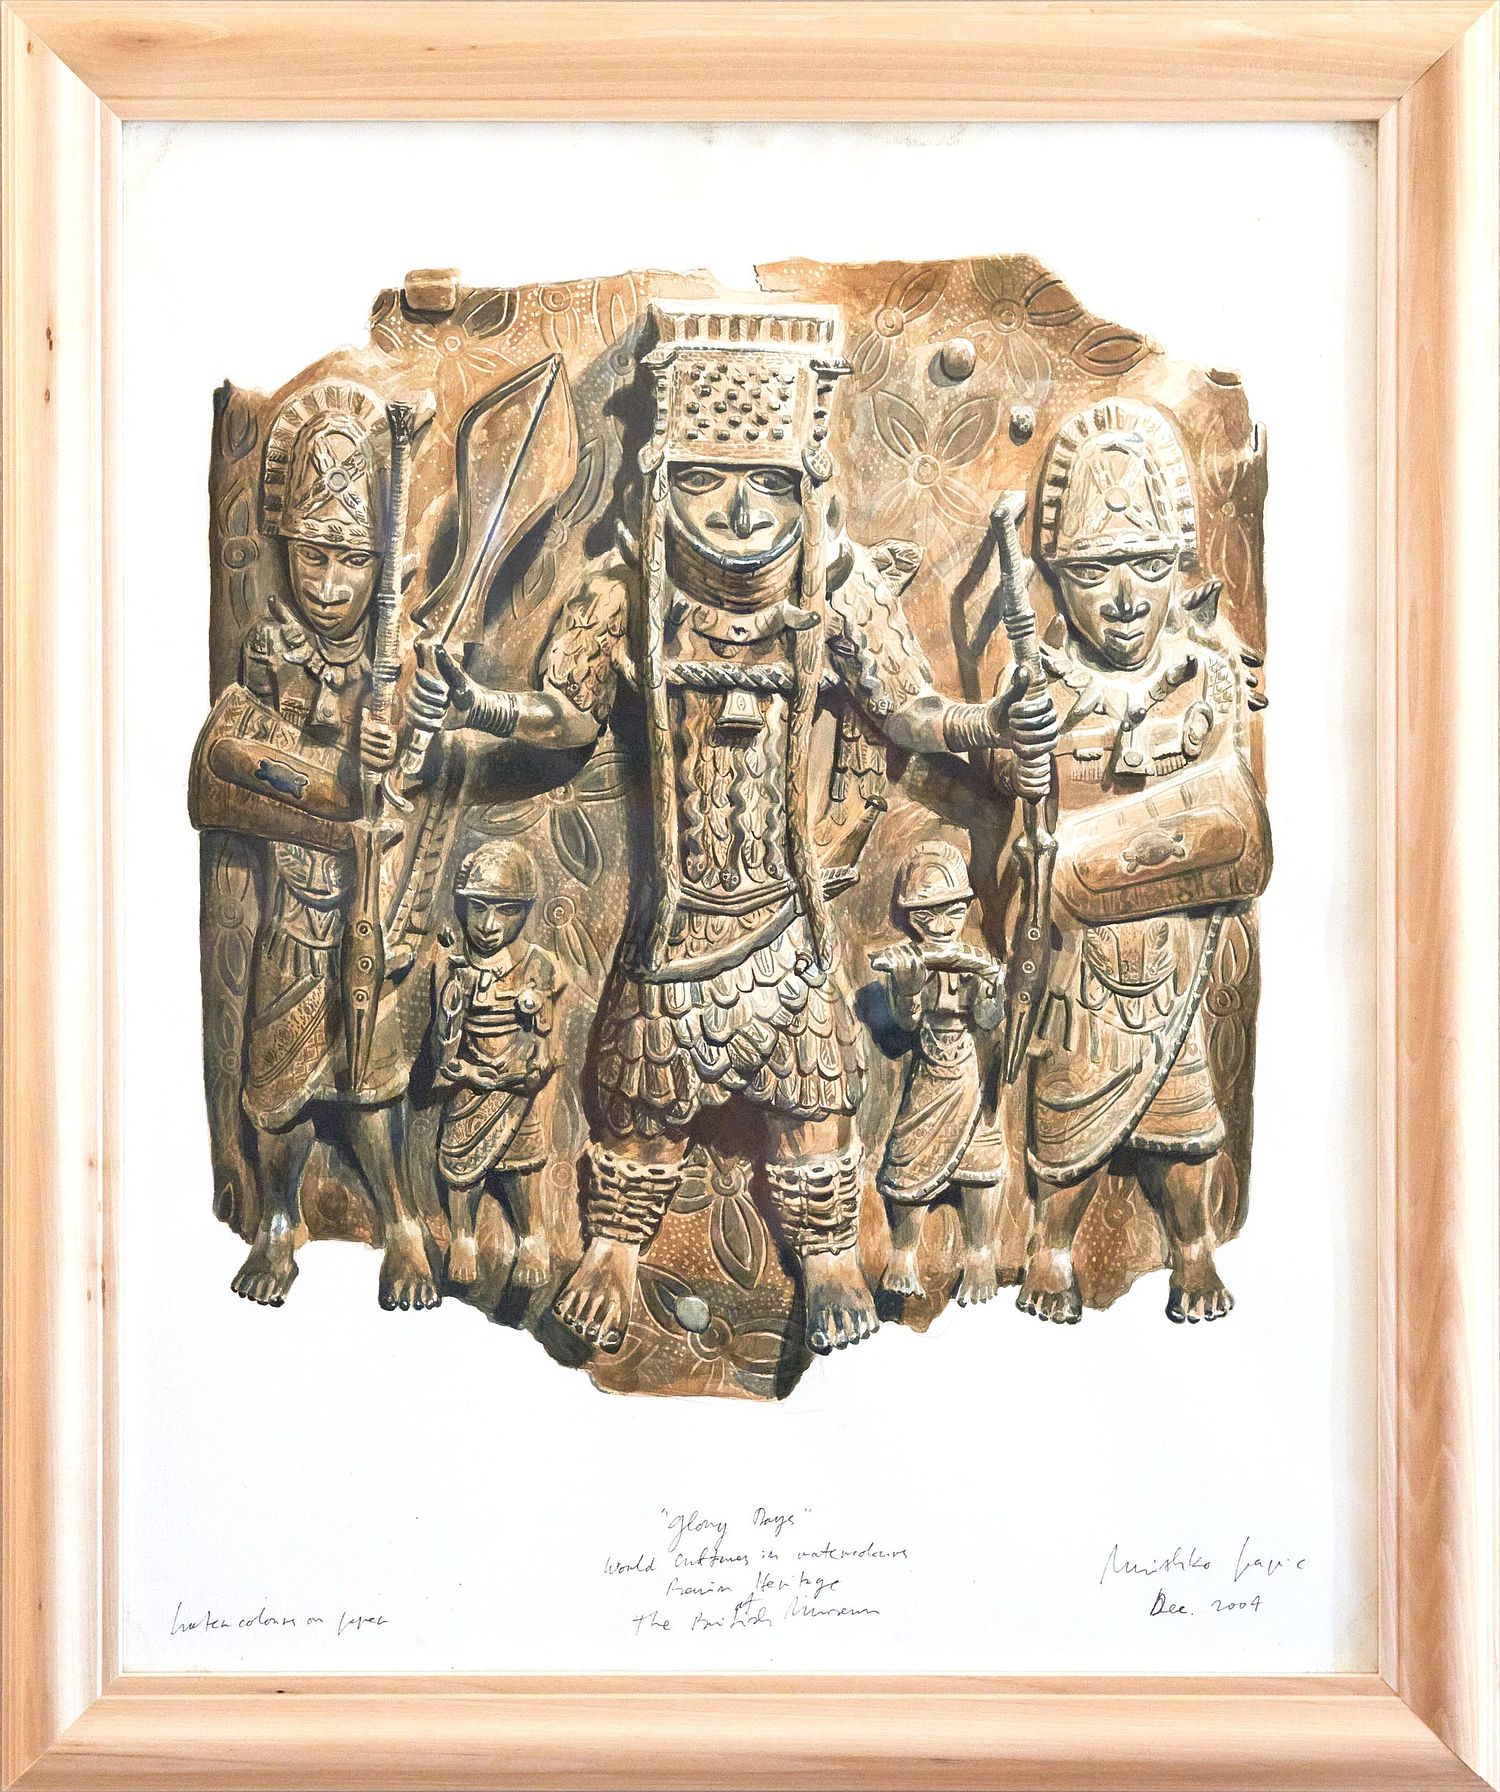 "Glory Days"
World Cultures in watercolours
Benin Heritage
at
The British Museum
Watercolours on paper
Mishko Papic
Dec. 2004